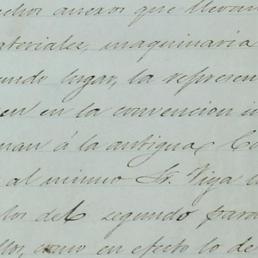 chos anexos que llevan
ateriales, maquinaria
undo lugar, la represen
en en la convencion i
man á la antigua Co
al mismo Sr. Viya
los del segundo para
llos, como en efecto lo de